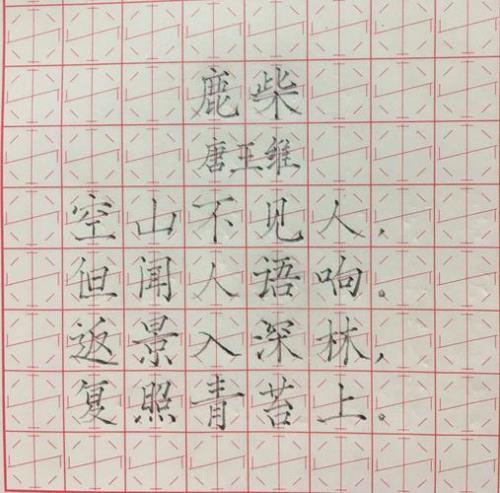 鹿柴
唐王维
空山不见人,
但闻人语响。
返景入深林,
复照青苔上。